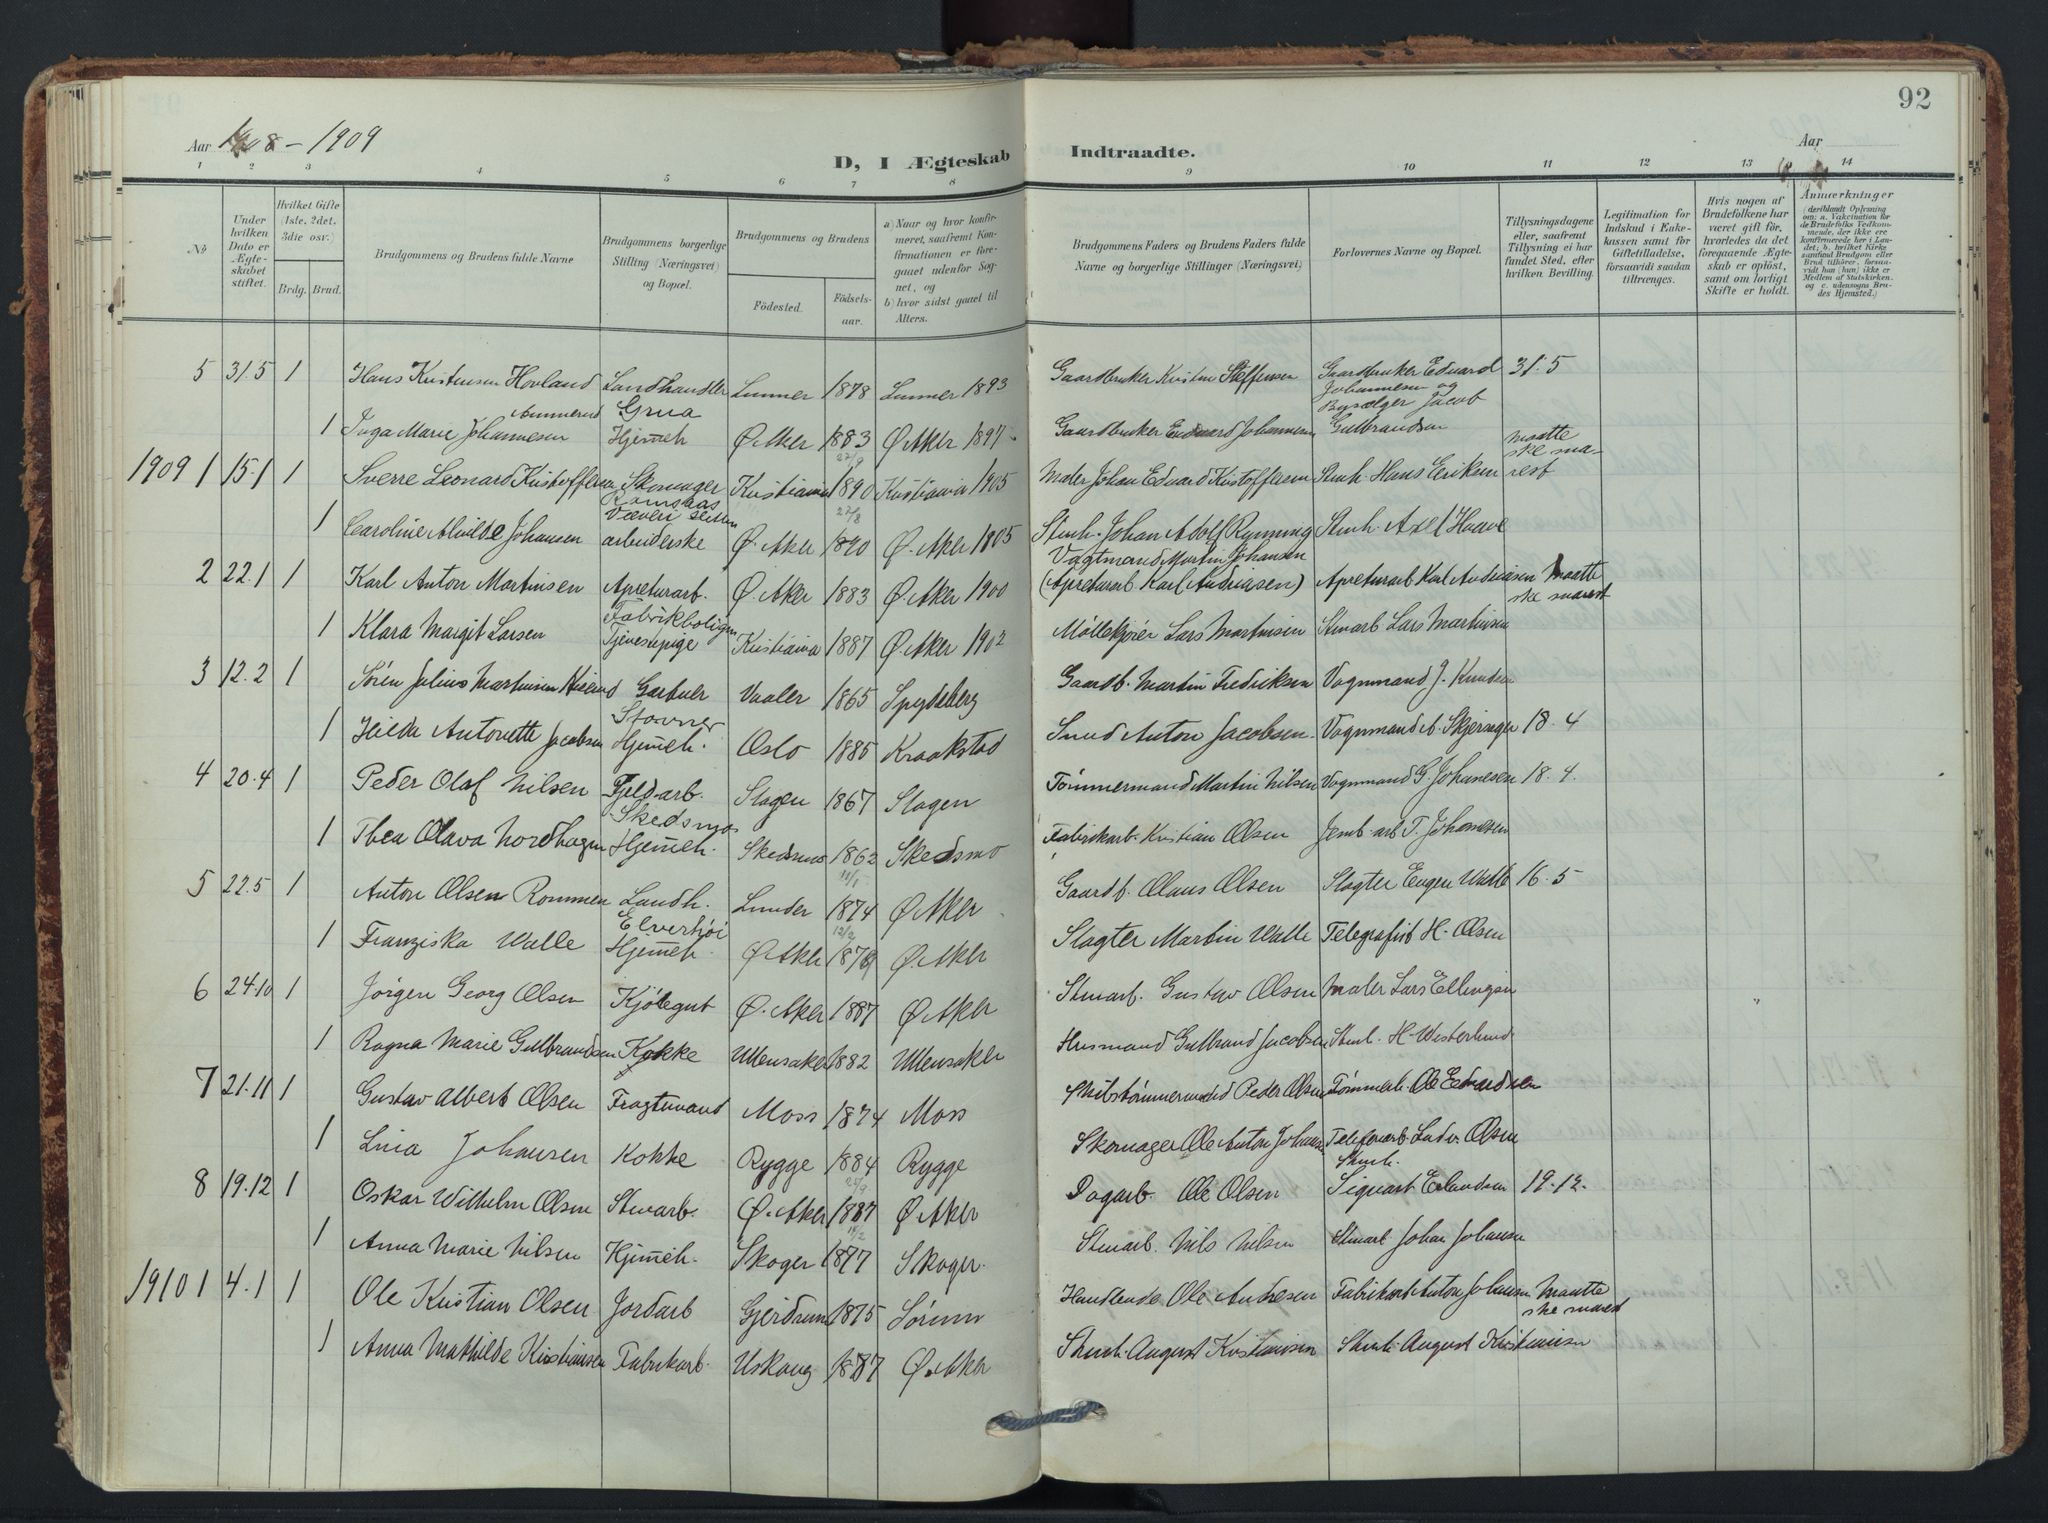 92
Aar 1908 - 1909
Aar
D, I Ægteskab Indtraadte.
1 2 3 4 5 6 7 8 9 10 11 12 13 14
No
Under hvilken Dato er Ægteskabet stiftet.
Hvilket Gifte (1ste, 2det, 3die osv.)
Brdg. Brud.
Brudgommens og Brudens fulde Navne
Brudgommens borgerlige Stilling (Næringsvei) og Bopæl.
Brudgommens og Brudens
Födested. Födselsaar.
a) Naar og hvor konfirmeret, saafremt Konfirmationen er foregaaet udenfor Sognet, og
b) hvor sidst gaaet til Alters.
Brudgommens Faders og Brudens Faders fulde Navne og borgerlige Stillinger (Næringsvei)
Forlovernes Navne og Bopæl.
Tillysningsdagene eller, saafremt Tillysning ei har fundet Sted, efter hvilken Bevilling.
Legitimation for Indskud i Enkekassen samt for Giftetilladelse, forsaavidt saadan tiltrænges.
Hvis nogen af Brudefolkene har været gift för, hvorledes da det foregaaende Ægteskab er oplöst, samt om lovligt Skifte er holdt.
Anmærkninger (deriblandt Oplysning om: a. Vakcination for de Brudefolks Vedkommende, der ikke ere konfirmerede her i Landet; b. hvilket Kirkesamfund Brudgom eller Brud tilhörer, forsaavidt han (hun) ikke er Medlem af Statskirken, og c. udensogns Brudes Hjemsted.)
5 31.5 1 Hans Kristensen Hovland Landhandler Lunner 1878 Lunner 1893 Gaardbruker Kristen Steffensen Gaardbruker Eduard 31.5
Ammerud Grua Johannesen og
Bysælger Jacob
1 Inga Marie Johannesen Hjemmeh Ø. Aker 1883 Ø. Aker 1897 Gaardbruker Eduard Johannesen Gulbrandsen
1909 1 15.1 1 Sverre Leonard Kristoffersen Skomager Kristiania 22/9 1890 Kristiania 1905 Maler Johan Eduard Kristoffersen Stenh. Hans Eriksen maatte ske marest
1 Caroline Alvilde Johansen arbeiderske Ø. Aker 22/8 1890 Ø. Aker 1805 Stenh. Johan Adolf Rynning Stenh. Axel Haave
Vagtmand Martin Johansen
2 22.1 1 Karl Anton Martinsen Apreturarb. Ø. Aker 1883 Ø. Aker 1900 (Apreturarb Karl Andreasen) Apreturarb Karl Andreasen Maatte ske marest
Fabrikboligen
1 Klara Margit Larsen Tjenestepige Kristiania 1887 Ø. Aker 1902 Møllekjører Lars Martinsen Stenarb Lars Martinsen
3 12.2 1 Søren Julius Martinsen Gartner Vaaler 1865 Spydeberg Gaardb. Martin Fredriksen Vognmand J. Knudsen
Stovner
1 Hilda Antonette Jacobsen Hjemmeh. Oslo 1885 Kraakstad Smed Anton Jacobsen Vognmand A. 18.4
4 20.4 1 Peder Olaf Nilsen Fjeldarb. Slagen 1867 Slagen Tømmermand Martin Nilsen Vognmand G. Johanesen 18.4.
Skedsmo
1 Thea Olava Nordhagen Hjemmeh. Skedsmo 1862 Skedsmo Fabrikarb. Kristian Olsen Jernb. arb T. Johannesen
5 22.5 1 Anton Olsen Rommen Landh. Lunder 11/1 1874 Ø. Aker Gaardb. Olaus Olsen Slagter Eugen Walle 16.5
Elverhøi
1 Franziska Walle Hjemmeh. Ø. Aker 12/2 1879 Ø. Aker Slagter Martin Walle Telegrafist H. Olsen
6 24.10 1 Jørgen Georg Olsen Kjølegut Ø. Aker 1887 Ø. Aker Stenarb. Gustav Olsen Maler Lars Ellingsen
1 Ragna Marie Gulbrandsen Kokke Ullensaker 1882 Ullensaker Husmand Gulbrand Jacobsen Stenh. H. Westerlund
7 21.11 1 Gustav Albert Olsen Fragtmand Moss 1874 Moss Skibstømmermand Peder Olsen Tømmerh. Ole Eduardsen
1 Lina Johansen Kokke Rygge 1884 Rygge Skomager Ole Anton Johansen Telefonarb. Ludv. Olsen
8 19.12 1 Oskar Wilhelm Olsen Stenarb. Ø. Aker 25/9 1887 Ø. Aker Dagarb. Ole Olsen Stenh. Siguart Erlandsen 19.12.
1 Anna Marie Nilsen Hjemmeh. Skoger 14/2 1877 Skoger. Stenarb. Nils Nilsen Stenarb Johan Johansen
1910 1 4.1 1 Ole Kristian Olsen Jordarb Gjerdrum 1875 Sørum Handlende Ole Andresen Fabrikarb Anton Johansen Maatte ske marest
1 Anna Mathilde Kristiansen Fabrikarb. Uskoug 1887 Ø. Aker Stenh. August Kristiansen Stenh. August Kristiansen